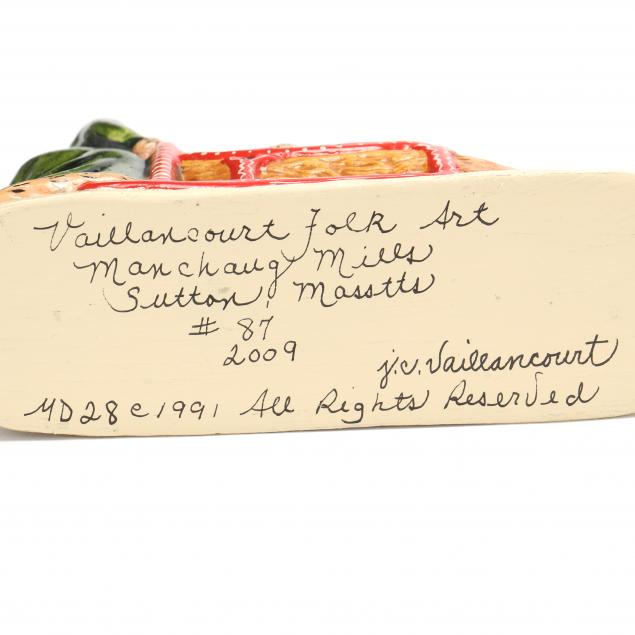 Vaillancourt Folk Art
Manchaug Mills
Sutton, Masstts
# 87
2009
j.v. Vaillancourt
MD28 c 1991 All Rights Reserved